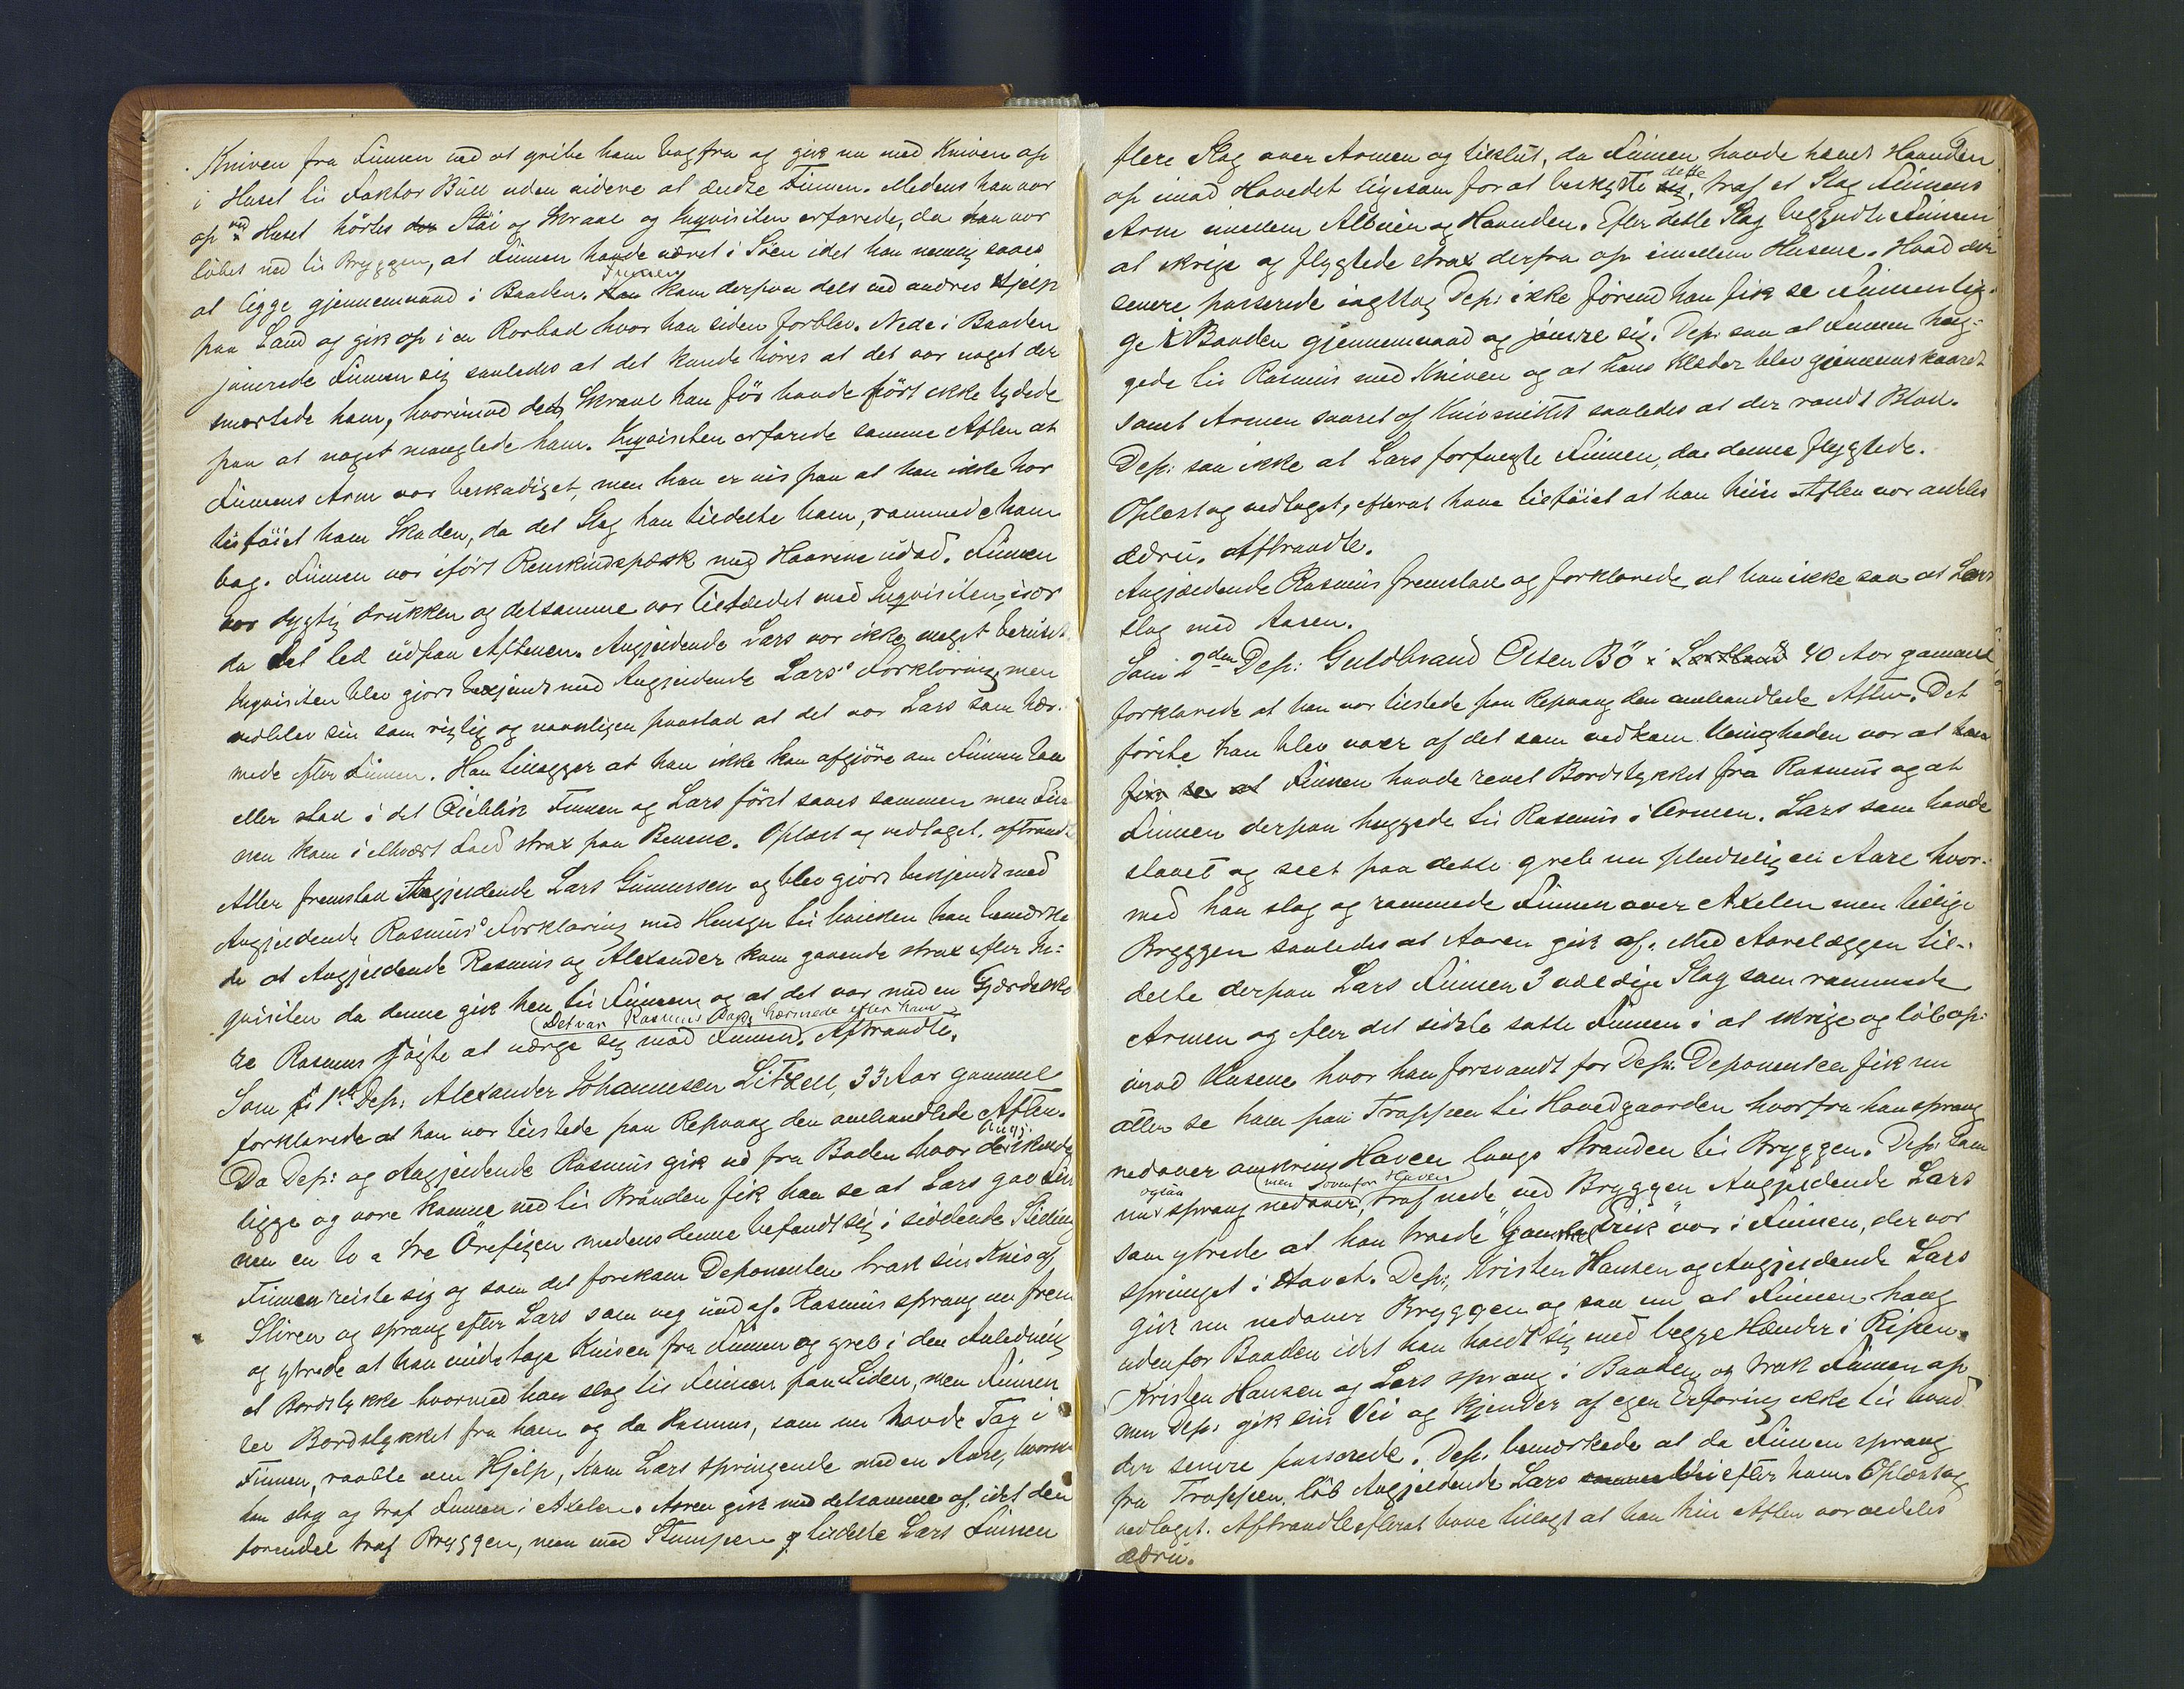 Kniven fra Finnen ved at gribe ham bagfra og gik nu med Kniven op
i Huset til Faktor Büll uden videre at ændse Finnen. Medens han var
op ved Huset hörtes der Stöi og Skraal og Inqvisiten erfarede, da han var
löbet ned til Bryggen, at Finnen havde været i Söen idet han nemlig saaes
at ligge gjennemvaad i Baaden. Han Finnen kom derpaa dels ved andres Hjelp
paa Land og gik op i en Rorbod hvor han siden forblev. Nede i Baaden
jamrede Finnen sig saaledes at det kunde höres at det var noget der
smertede ham, hvorimod det Skraal han för havde hört ikke tydede
paa at noget manglede ham. Inqvisiten erfarede samme Aften at
Finnens Arm var beskadiget, men han er vis paa at han ikke har
tilföiet ham Skaden, da det Slag han tildelte ham, rammede ham
bag. Finnen var iført Renskindspæsk med Haarene udad. Finnen
var dygtig drukken og detsamme var Tilfældet med Inqvisiten, især
da det led udpaa Aftenen. Angjeldende Lars var ikke meget beruset.
Inqvisiten blev gjort bekjendt med Angjeldende Lars' Forklaring, men
vedblev sin som rigtig og navnligen paastod at det var Lars som hær-
mede efter Finnen. Han tillægger at han ikke kan afgjöre om Finnen laa
eller stod i det Öieblik Finnen og Lars först saaes sammen men Fin-
nen kom i ethvert Fald strax paa Benene. Oplæst og vedtaget. aftraadt.
Atter fremstod Angjeldende Lars Gunnersen og blev gjort bekjendt med
Angjeldende Rasmus' Forklaring med Hensyn til hvilken han bemærke-
de at Angjeldende Rasmus og Alexander kom gaaende strax efter In-
qvisiten da denne gik hen til Finnen og at det var med en Gjærdesko-
re Rasmus sögte at værge sig mod Finnen. Det var Rasmus som hærmede efter ham Aftraadte.
Som 1ste Dep: Alexander Johannesen Litzell, 33 Aar gammel
forklarede at han var tilstede paa Repvaag den omhandlede Aften.
Da Dep: og Angjeldende Rasmus gik ud fra Boden hvor de skulde
ligge og vare komne ned til Brönden fik han se at Lars gav Fin-
nen en to a tre Örefigen medens denne befandt sig i siddende Stilling
Finnen reiste sig og som det forekom Deponenten trak sin Kniv af
Sliren og sprang efter Lars som veg undaf. Rasmus sprang nu frem
og ytrede at han vilde tage Kniven fra Finnen og greb i den Anledning
et Bordstykke hvormed han slog til Finnen paa Siden, men Finnen
rev Bordstykket fra ham og da Rasmus, som nu havde Tag i
Finnen, raabte om Hjelp, kom Lars springende med en Aare, hvormed
han slog og traf Finnen i Axelen. Aaren gik med detsamme af, idet den
forendel traf Bryggen, men med Stumpen tildelte Lars Finnen
flere Slag over Armen og tilslut, da Finnen havde hævet Haanden
op imod Hovedet ligesom for at beskytte sig dette, traf et Slag Finnens
Arm imellem Albuen og Haanden. Efter dette Slag begyndte Finnen
at skrige og flygtede strax derfra op imellem Husene. Hvad der
senere passerede iagttog Dep: ikke förend han fik se Finnen lig-
ge i Baaden gjennemvaad og jamre sig. Dep: saa at Finnen hug-
gede til Rasmus med Kniven og at hans Klæder blev gjennemskaaret
samt Armen saaret af Knivsnittet saaledes at der randt Blod.
Dep: saa ikke at Lars forfulgte Finnen, da denne flygtede.
Oplæst og vedtaget, efterat have tilföiet at han hiin Aften var aldeles
ædru. Aftraadte.
Angjeldende Rasmus fremstod og forklarede at han ikke saa at Lars
slog med Aaren.
Som 2den Dep: Guldbrand Olsen Bö i Sortland 40 Aar gammel
forklarede at han var tilstede paa Repvaag den omhandlede Aften. Det
förste han blev vaer af det som vedkom Uenigheden var at han
fik se at Finnen havde revet Bordstykket fra Rasmus og at
Finnen derpaa huggede til Rasmus i Armen. Lars som havde
staaet og seet paa dette greb nu pludselig en Aare hvor-
med han slog og rammede Finnen over Axelen men tillige
Bryggen saaledes at Aaren gik af. Med Aarelæggen til-
delte derpaa Lars Finnen 3 vældige Slag som rammede
Armen og efter det sidste satte Finnen i at skrige og löb op
imod Husene hvor han forsvandt for Dep: Deponenten fik nu
atter se ham paa Trappen til Hovedgaarden hvorfra han sprang
nedover omkring Haven langs Stranden til Bryggen. Dep: som
nu ogsaa sprang nedover, men ovenfor Haven traf nede ved Bryggen Angjeldende Lars
som ytrede at han troede "Gamle Erik" var i Finnen, der var
sprunget i Havet. Dep:, Kristen Hansen og Angjeldende Lars
gik nu nedover Bryggen og saa nu at Finnen hang
udenfor Baaden idet han holdt sig med begge Hænder i Ripen.
Kristen Hansen og Lars sprang i Baaden og trak Finnen op
men Dep: gik sin Vei og kjender af egen Erfaring ikke til hvad
der senere passerede. Dep: bemærkede at da Finnen sprang
fra Trappen, löb Angjeldende Lars efter ham. Oplæst og
vedtaget. Aftraadte efterat have tillagt at han hin Aften var aldeles
ædru.